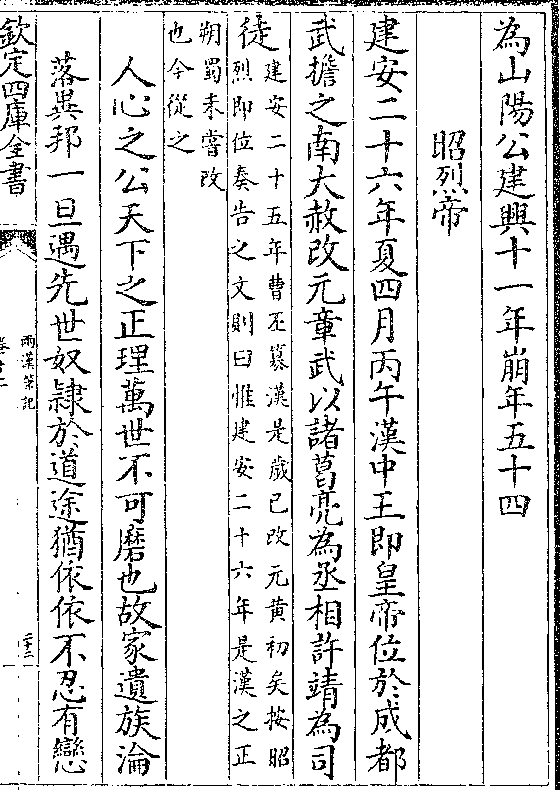 為山陽公建興十一年崩年五十四
昭烈帝
建安二十六年夏四月丙午漢中王即皇帝位於成都
武擔之南大赦改元章武以諸葛亮為丞相許靖為司
徒
建安二十五年曹丕篡漢是歲已改元黃初矣按昭
烈即位奏告之文則曰惟建安二十六年是漢之正
朔蜀未嘗改
也今從之
人心之公天下之正理萬世不可磨也故家遺族淪
落異邦一旦遇先世奴隷於道途猶依依不忍有戀
欽定四庫全書
兩漢筆記
二十二